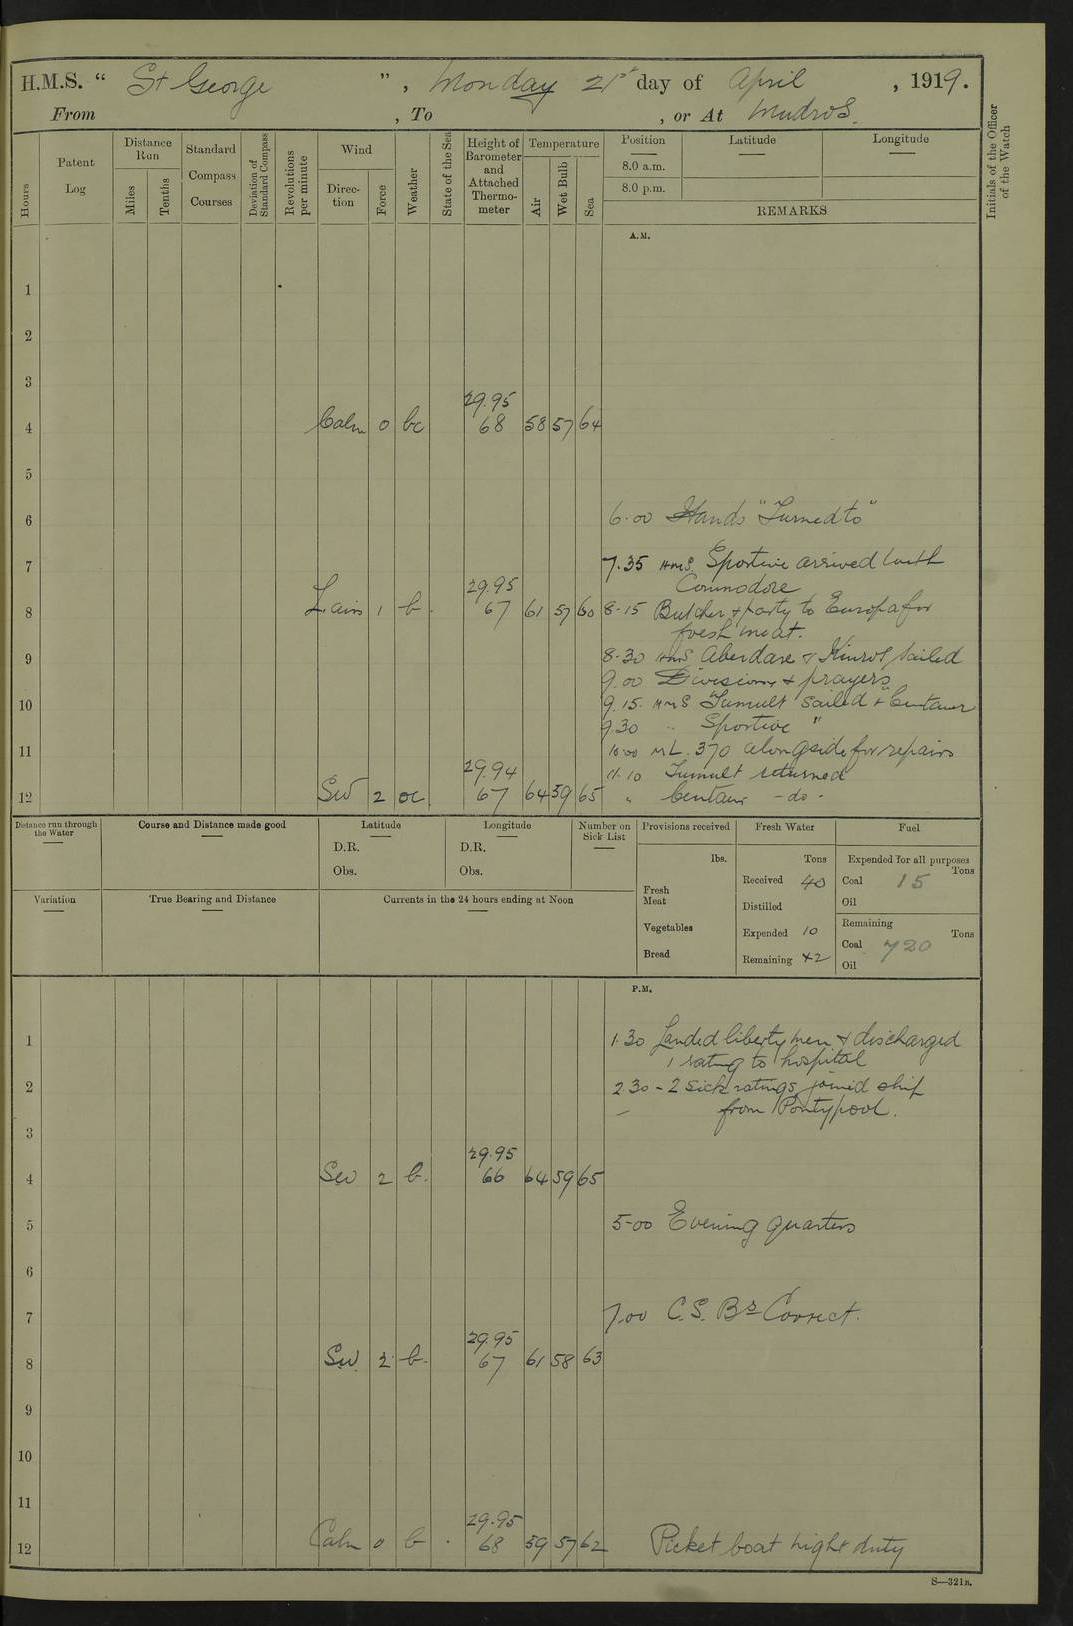 H.M.S. " St George ", Monday 21st day of April, 1919.
From , To , or At Mudros.
Hours
Patent Log
Distance Run
Miles
Tenths
Standard Compass Courses
Deviation of Standard Compass
Revolutions per minute
Wind
Direction
Force
Weather
State of the Sea
Height of Barometer and Attached Thermometer
Temperature
Air
Wet Bulb
Sea
Position
8.0 a.m.
8.0 p.m.
Latitude
Longitude
REMARKS
Initials of the Officer of the Watch
A.M.
1
2
3
29.95
4 Calm 0 bc 68 58 57 64
5
6 6.00 Hands "Turned to"
7 7.35 HMS. Sportive arrived with
Commodore
29.95
8 L. airs 1 b. 67 61 57 60 8-15 Butcher & party to Europa for
fresh meat.
9 8-30 HMS Aberdare & Kinros sailed
9.00 Divisions & prayers
10 9.15. HMS Tumult sailed & "Centaur
9.30 .. Sportive "
11 10.00 ML. 370 alongside for repairs
29.94
11.10 Tumult returned
12 SW 2 oc. 67 64 59 65 " Centaur -do-
Distance run through the Water
Course and Distance made good
Latitude
D.R.
Obs.
Longitude
D.R.
Obs.
Number on Sick List
Provisions received
lbs.
Fresh Meat
Vegetables
Bread
Fresh Water
Tons
Received 40
Distilled
Expended 10
Remaining 42
Fuel
Expended for all purposes
Tons
Coal 15
Oil
Remaining
Tons
Coal 720
Oil
Variation
True Bearing and Distance
Currents in the 24 hours ending at Noon
P.M.
1 1.30 Landed liberty men & discharged
1 rating to hospital
2 2.30 - 2 sick ratings joined ship
from Pontypool.
3
29.95
4 SW 2 b. 66 64 59 65
5 5-00 Evening quarters
6
7 7.00 C.S. Bs Correct.
29.95
8 SW. 2 b. 67 61 58 63
9
10
11
29.95
12 Calm 0 b 68 59 57 62 Picket boat night duty
S—321B.